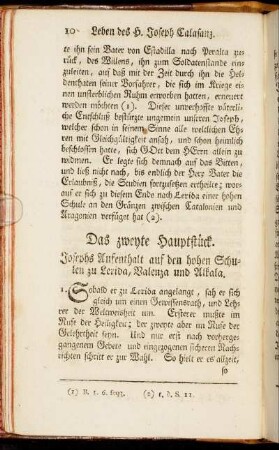 10 Leben des H. Joseph Calasanz.
te ihn sein Vater von Estadilla nach Peralta zu-
rück, des Willens, ihn zum Soldatenstande ein-
zuleiten, auf daß mit der Zeit durch ihn die Hel-
denthaten seiner Vorfahrer, die sich im Kriege ei-
nen unsterblichen Ruhm erworben hatten, erneuert
werden möchten (1). Dieser unverhoffte väterli-
che Entschluß bestürzte ungemein unsern Joseph,
welcher schon in seinem Sinne alle weltlichen Eh-
ren mit Gleichgültigkeit ansah, und schon heimlich
beschlossen hatte, sich GOtt dem HErrn allein zu
widmen. Er legte sich demnach auf das Bitten,
und ließ nicht nach, bis endlich der Herr Vater die
Erlaubniß, die Studien fortzusetzen ertheilte; wor-
auf er sich zu diesem Ende nach Lerida einer hohen
Schule an den Gränzen zwischen Catalonien und
Aragonien verfüget hat (2).
Das zweyte Hauptstück.
Josephs Aufenthalt auf den hohen Schu-
len zu Lerida, Valenza und Alkala.
1. Sobald er zu Lerida angelangt, sah er sich
gleich um einen Gewissensrath, und Leh-
rer der Weltweisheit um. Ersterer mußte im
Rufe der Heiligkeit; der zweyte aber im Rufe der
Gelehrtheit seyn. Und mit erst nach vorherge-
gangenem Gebete und eingezogenen sicheren Nach-
richten schritt er zur Wahl. So hielt er es allzeit,
so
(1) B. 1. 6. seqq. (2) 1. d. S. 11.